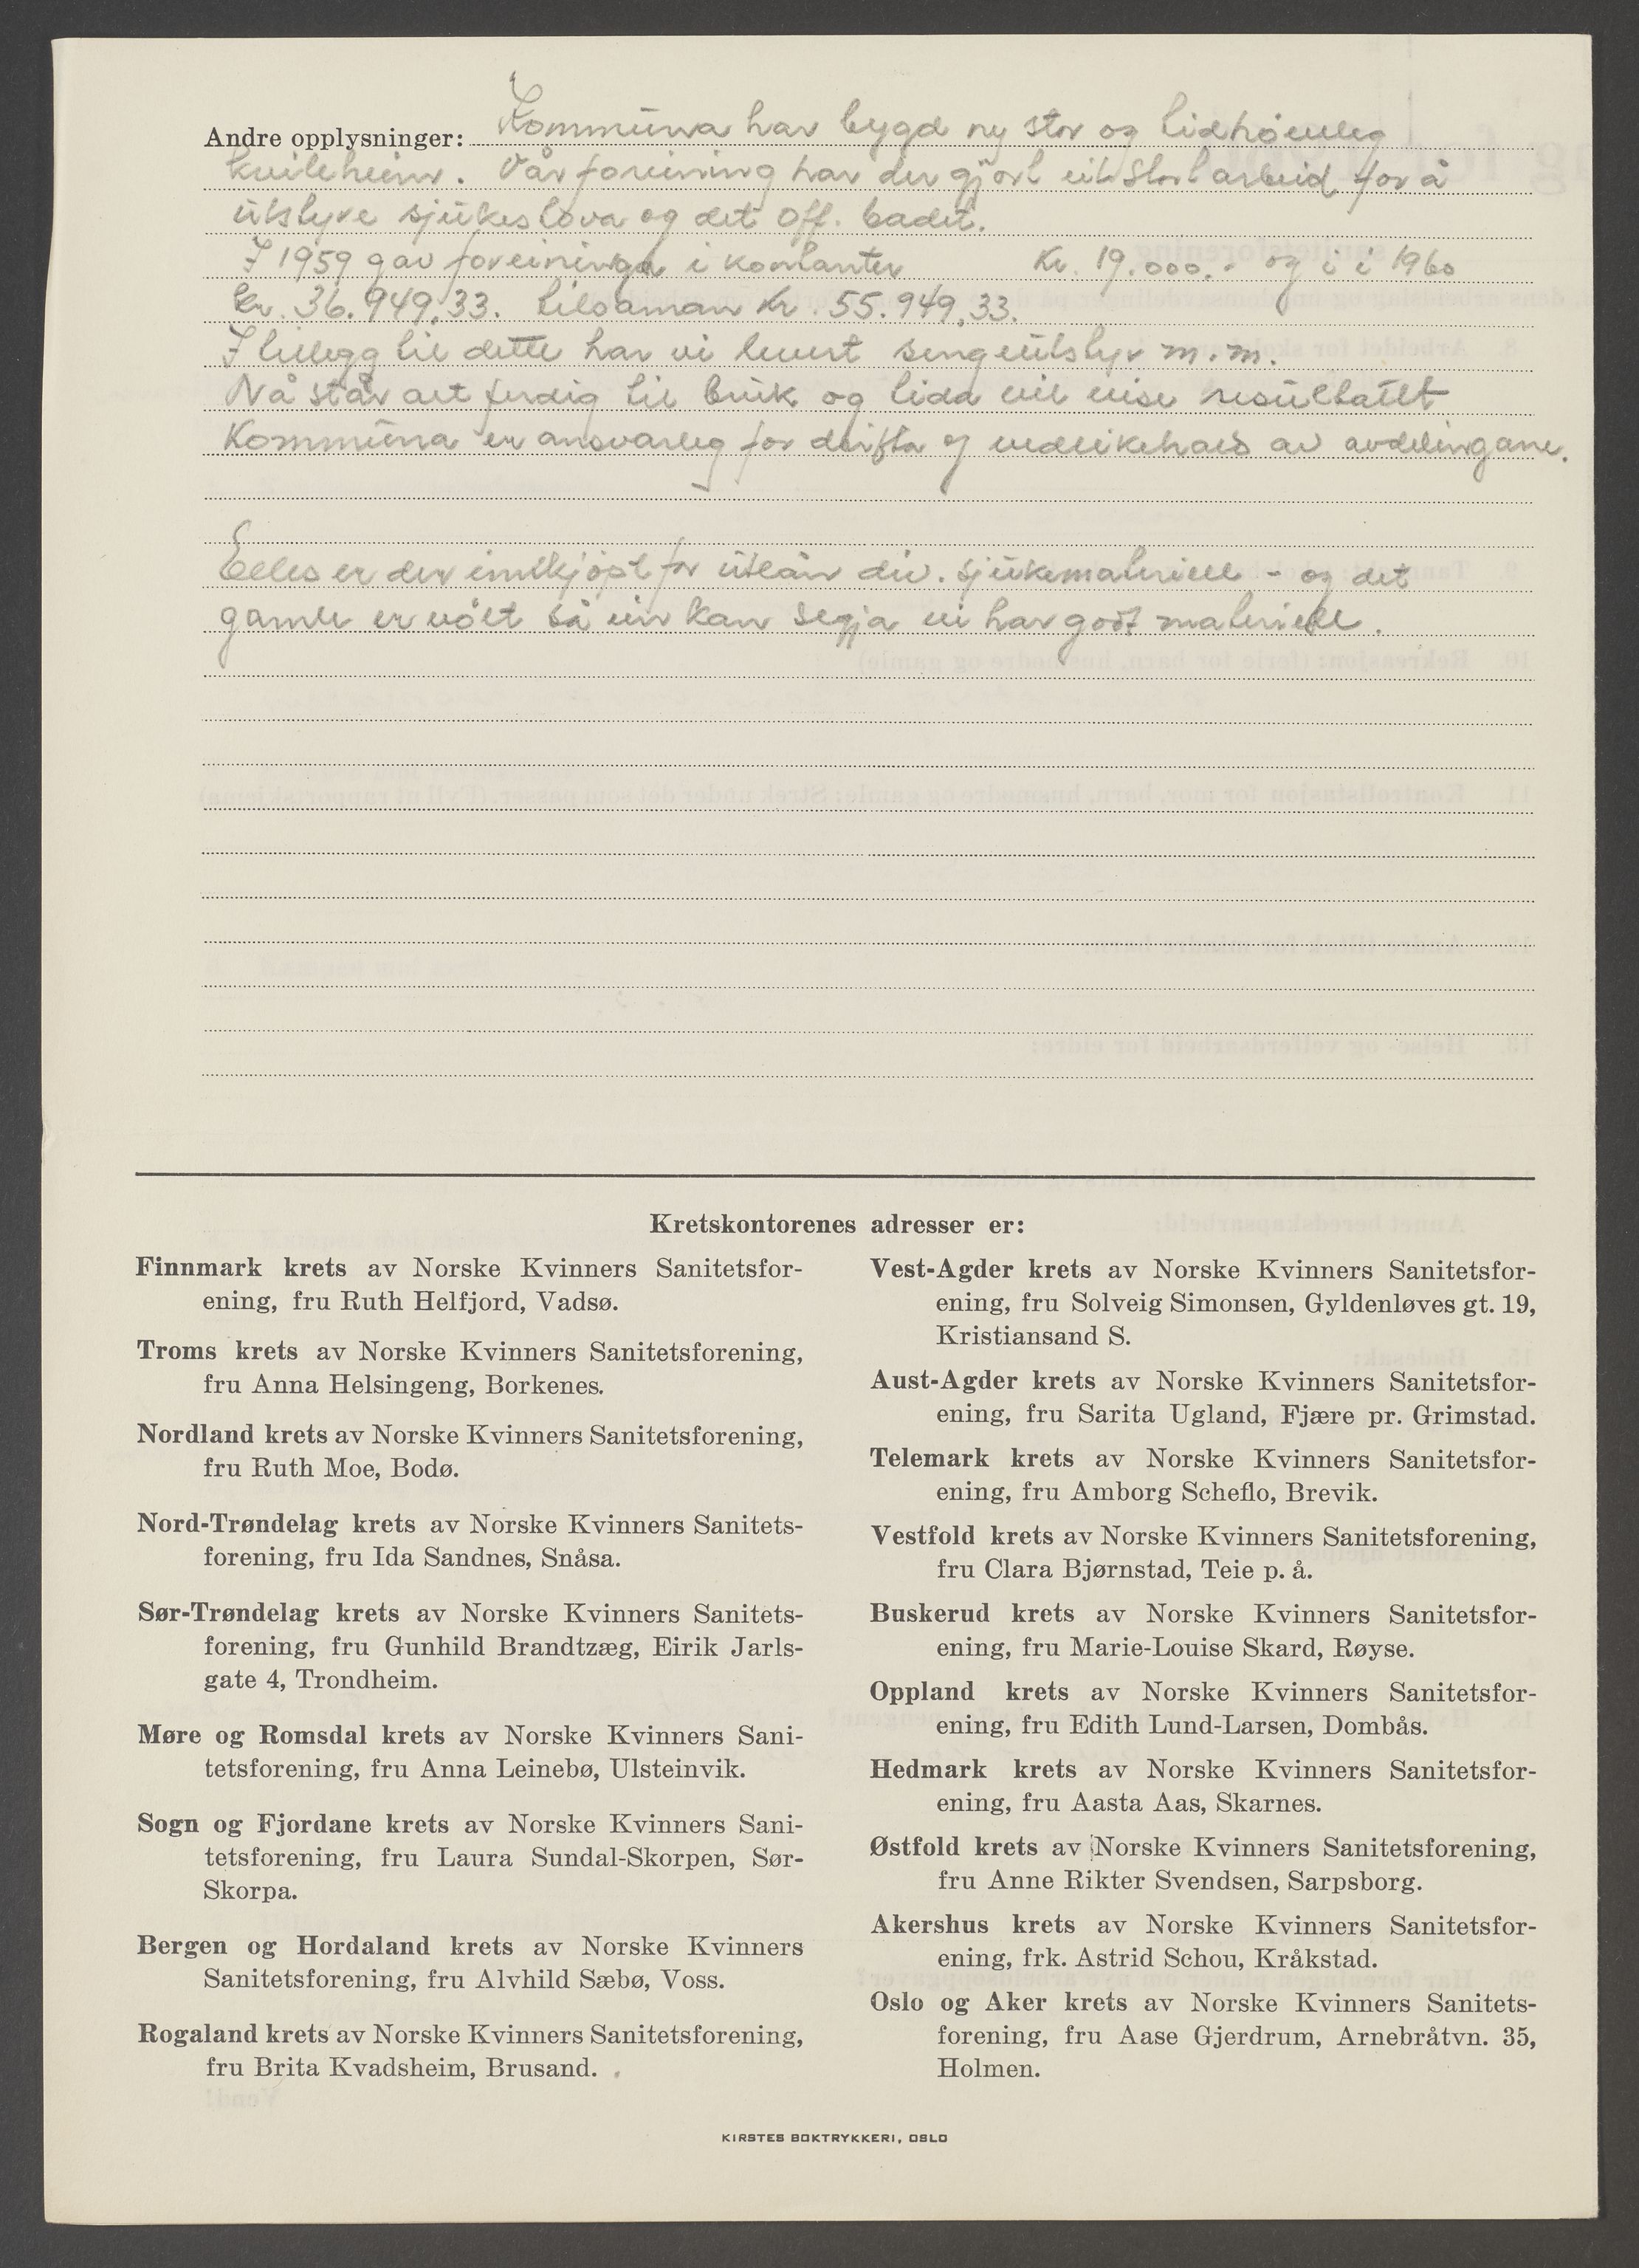 Andre opplysninger: Kommuna har bygd ny stor og tidhøveleg
kvileheim. Vår foreining har der gjort eit stort arbeid for å
utstyre sjukestova og det off. badet.
I 1959 gav foreininga i kontanter kr. 19.000.- og i i 1960
kr. 36.949,33. tilsaman kr. 55.949,33.
I tillegg til dette har vi levert sengeutstyr m.m.
Nå står alt ferdig til bruk og tida vil vise resultatet
Kommuna er ansvarleg for drifta og vedlikehald av avdelingane.
Elles er der innkjøpt for utlån div. sjukemateriell - og det
gamle er vølt så ein kan segja vi har godt materiell.
Kretskontorenes adresser er:
Finnmark krets av Norske Kvinners Sanitetsfor-
ening, fru Ruth Helfjord, Vadsø.
Troms krets av Norske Kvinners Sanitetsforening,
fru Anna Helsingeng, Borkenes.
Nordland krets av Norske Kvinners Sanitetsforening,
fru Ruth Moe, Bodø.
Nord-Trøndelag krets av Norske Kvinners Sanitets-
forening, fru Ida Sandnes, Snåsa.
Sør-Trøndelag krets av Norske Kvinners Sanitets-
forening, fru Gunhild Brandtzæg, Eirik Jarls-
gate 4, Trondheim.
Møre og Romsdal krets av Norske Kvinners Sani-
tetsforening, fru Anna Leinebø, Ulsteinvik.
Sogn og Fjordane krets av Norske Kvinners Sani-
tetsforening, fru Laura Sundal-Skorpen, Sør-
Skorpa.
Bergen og Hordaland krets av Norske Kvinners
Sanitetsforening, fru Alvhild Sæbø, Voss.
Rogaland krets av Norske Kvinners Sanitetsforening,
fru Brita Kvadsheim, Brusand.
Vest-Agder krets av Norske Kvinners Sanitetsfor-
ening, fru Solveig Simonsen, Gyldenløves gt. 19,
Kristiansand S.
Aust-Agder krets av Norske Kvinners Sanitetsfor-
ening, fru Sarita Ugland, Fjære pr. Grimstad.
Telemark krets av Norske Kvinners Sanitetsfor-
ening, fru Amborg Scheflo, Brevik.
Vestfold krets av Norske Kvinners Sanitetsforening,
fru Clara Bjørnstad, Teie p. å.
Buskerud krets av Norske Kvinners Sanitetsfor-
ening, fru Marie-Louise Skard, Røyse.
Oppland krets av Norske Kvinners Sanitetsfor-
ening, fru Edith Lund-Larsen, Dombås.
Hedmark krets av Norske Kvinners Sanitetsfor-
ening, fru Aasta Aas, Skarnes.
Østfold krets av Norske Kvinners Sanitetsforening,
fru Anne Rikter Svendsen, Sarpsborg.
Akershus krets av Norske Kvinners Sanitetsfor-
ening, frk. Astrid Schou, Kråkstad.
Oslo og Aker krets av Norske Kvinners Sanitets-
forening, fru Aase Gjerdrum, Arnebråtvn. 35,
Holmen.
KIRSTES BOKTRYKKERI, OSLO